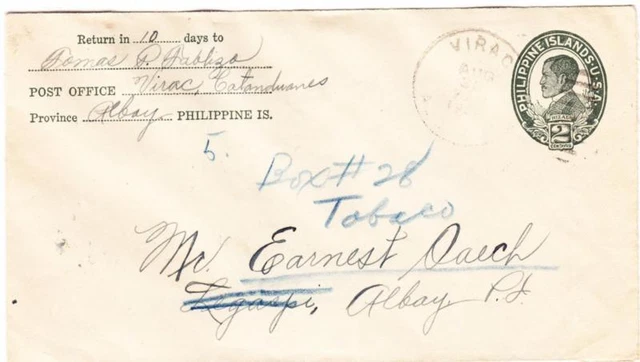 Return in 10 days to
Tomas P. Tablizo
POST OFFICE Virac, Catanduanes
Province Albay PHILIPPINE IS.
VIRAC
AUG
PHILIPPINE ISLANDS·U·S·A·
2
5.
Box # 28
Tobaco
Mr. Earnest Oaech
Legaspi, Albay P.I.